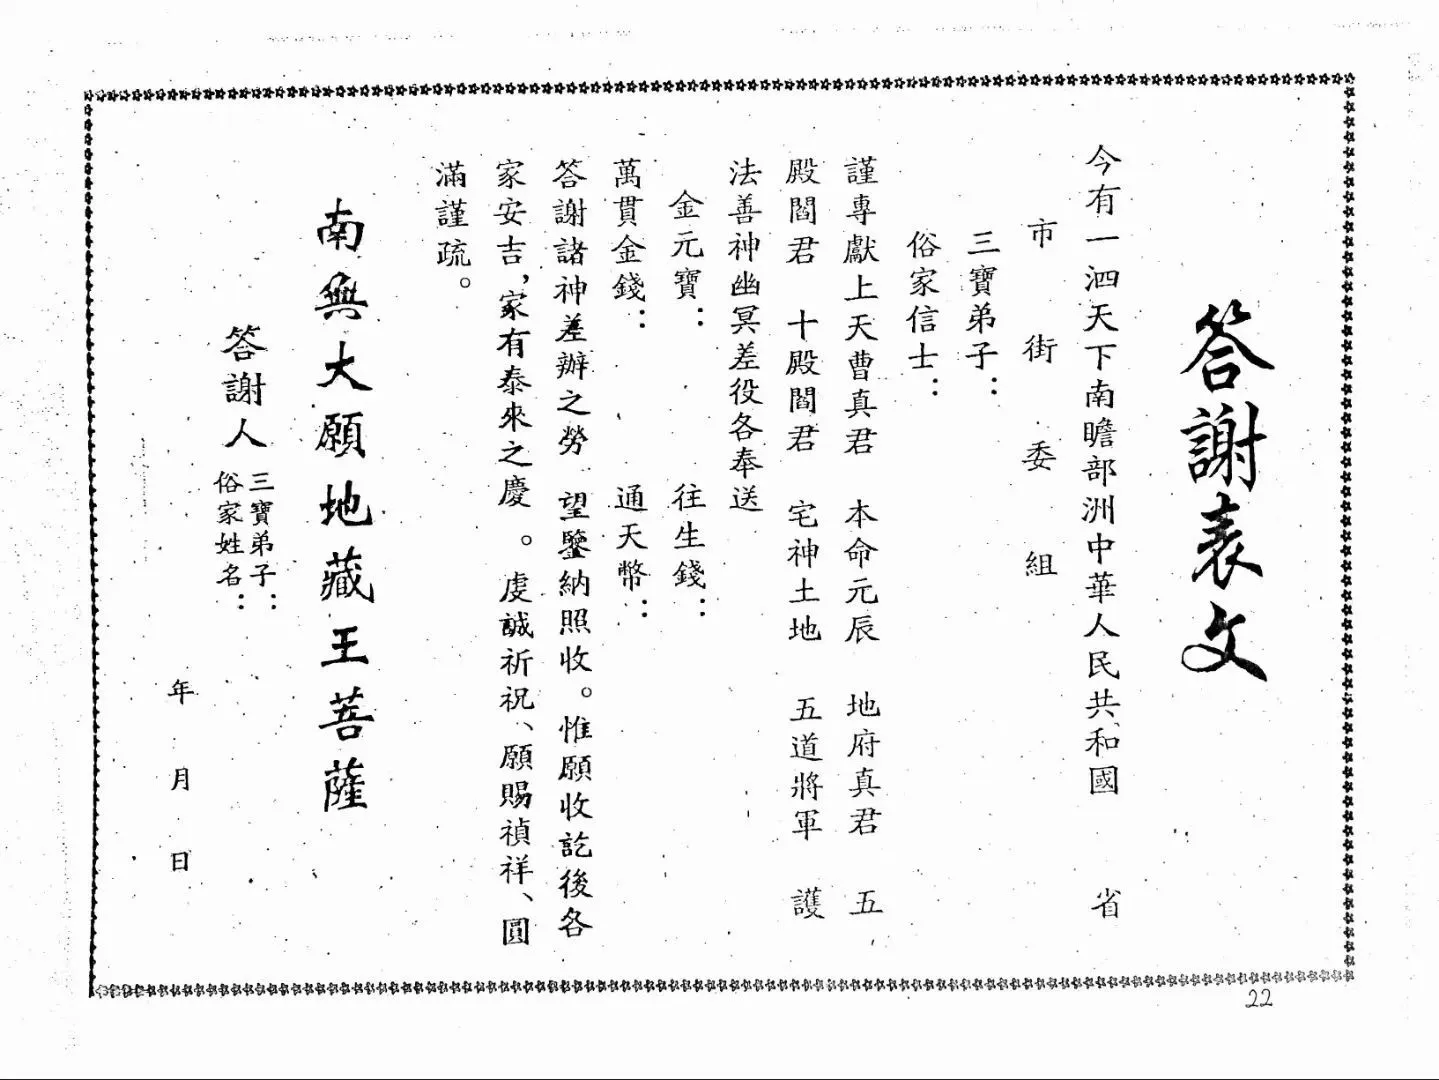 答謝表文
今有一泗天下南瞻部洲中華人民共和國 省
市 街 委 組
三寶弟子：
俗家信士：
謹專獻上天曹真君 本命元辰 地府真君 五
殿閻君 十殿閻君 宅神土地 五道將軍 護
法善神幽冥差役各奉送
金元寶： 往生錢：
萬貫金錢： 通天幣：
答謝諸神差辦之勞 望鑒納照收。惟願收訖後各
家安吉，家有泰來之慶。虔誠祈祝、願賜禎祥、圓
滿謹疏。
南無大願地藏王菩薩
答謝人
三寶弟子：
俗家姓名：
年 月 日
22